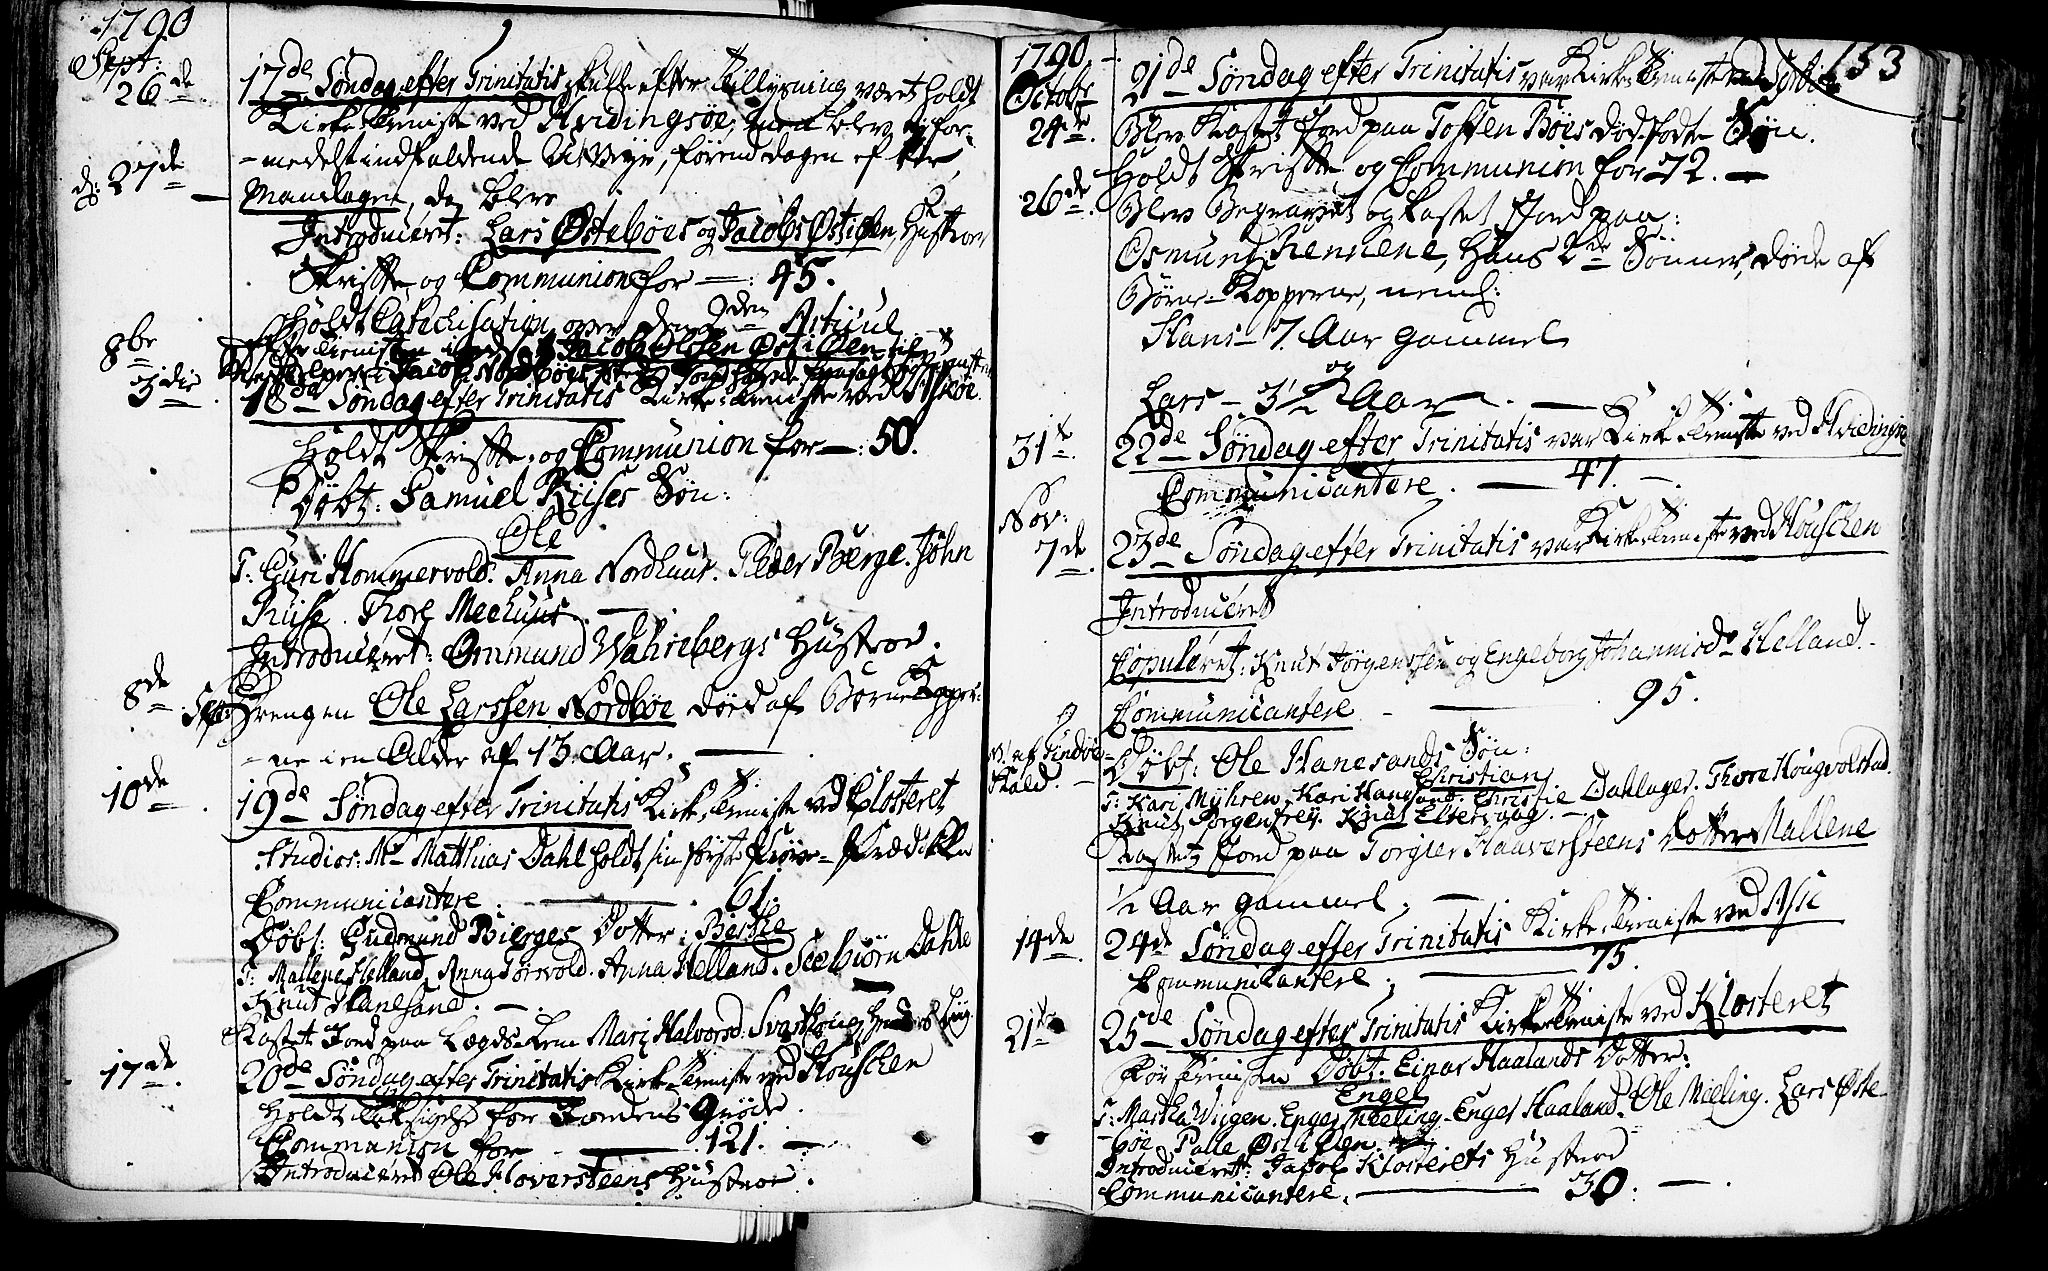 1790
Sept:
26de
17de Søndag efter Trinitatis skulle efter Tillysning været holdt
Kirke-Tieniste ved Hvidingsøe, men blev for-
-medelst indfaldende
d: 27de
Mandagen, da blev
Introduceret: Lars Østebøes og Jacobs Øst i Øen, Hustroer
Skrifte og Communion for —: 45.
Holdt Catechisation over den 9den Articul
8br
Jacob Olsen Øst i Øen
3die
18de Søndag efter Trinitatis Kirke-Tieniste ved Askøe.
Holdt Skrifte og Communion for —: 50.
Døbt: Samuel Riises Søn:
Ole
T: Guri Hommervold. Anna Nordhuus. Peder Berge. John
Riise. Thore Meehuus. —
Introduceret: Ommund Wahrebergs Hustroe.
8de
Drengen Ole Larssen Nordbøe døde af Børne Kopper-
-ne i en Alder af 13 Aar. —
10de
19de Søndag efter Trinitatis Kirke-Tieniste ved Closteret
Studios: Mr Matthias Dahl holdt sin første Prøve-Prædiken
Communicantere. — 61.
Døbt: Gudmund Bierges Dotter: Berthe
T: Mallene Helland, Anna Torvold. Anna Helland. Seebiørn Dahle
Knut Hanesand. —
Kastet Jord paa Lægds-Lem Mari Halvorsd:
17de
20de Søndag efter Trinitatis Kirke-Tieniste ved Houschen
Holdt Taksigelse for Jordens Grøde.
Communion for — 121. —
Introduceret Ole Hoversteens Hustroe.
1790
153
Octobr
24de
21de Søndag efter Trinitatis var Kirke-Tieniste ved
Blev Kastet Jord paa Tosten Bøes dødfødte Søn.
Holdt Skrifte og Communion for 72. —
26de
Blev Begravet og kastet Jord paa:
Osmund Rennene, Hans 2de Sønner, døde af
Børne-Kopperne, neml:
Hans — 7 Aar gammel
og
Lars — 3½ Aar. —
31te
22de Søndag efter Trinitatis var Kirke-Tieniste ved Hvidingsøe
Communicantere. — 47. —
Nov:
7de
23de Søndag efter Trinitatis var Kirke-Tieniste ved Houschen
Introduceret
Copuleret: Knut Jørgenssen og Engeborg Johannisdr Helland.
Communicantere — 95.
Døbt: Ole Hanesands Søn:
Christian
T: Kari Myhren, Kari Hanesand. Christie Dahlager. Thore Hougvolstad.
Knut Borgenfrey. Knut Eltervaag. —
Kastet Jord paa Torgier Haaversteens Dotter Mallene
½ Aar gammel. —
14de
24de Søndag efter Trinitatis Kirke-Tieniste ved Aske
Communicantere. — 75.
21te
25de Søndag efter Trinitatis Kirke-Tieniste ved Klosteret
Før Tienisten Døbt: Einar Haalands Dotter:
Engel
T: Martha Viigen. Engel Meeling. Engel Haaland. Ole Meeling. Lars Øste-
-bøe. Palle Øst i Øen.
Introduceret: Jacob Klosterets Hustroe
Communicantere. — 30. —